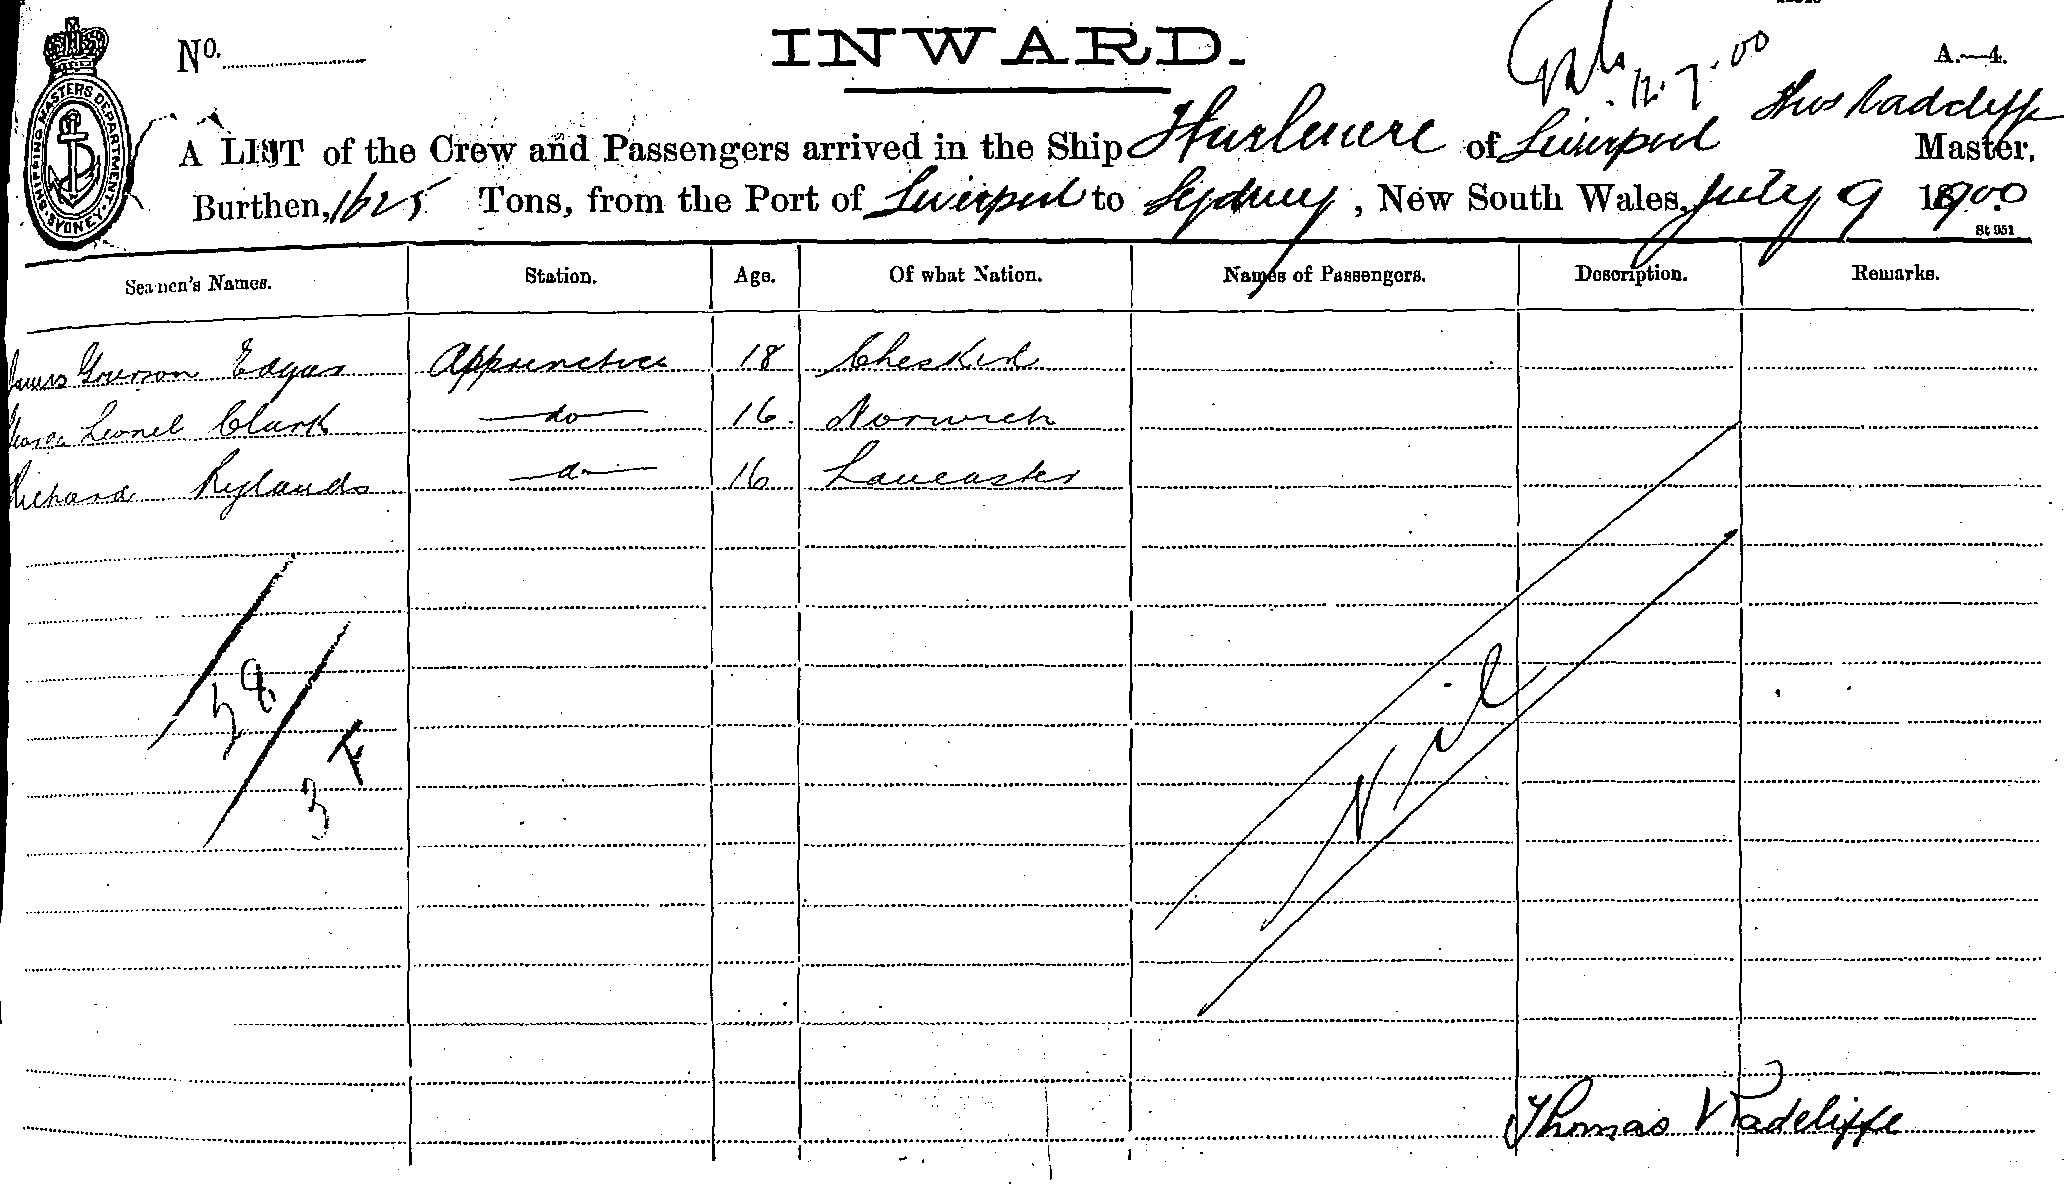 SHIPPING MASTERS DEPARTMENT. SYDNEY.
No.
INWARD.
12.7.00
A.—4.
Thos Radcliffe
A LIST of the Crew and Passengers arrived in the Ship of Liverpool Master,
Burthen, 1625 Tons, from the Port of Liverpool to Sydney, New South Wales, July 9 1900
St 951
Seamen's Names. Station. Age. Of what Nation. Names of Passengers. Description. Remarks.
James Edgar Apprentice 18
George Lionel Clark do 16. Norwich
Richard Rylands do 16 Lancaster
Nil
3
Thomas Radcliffe